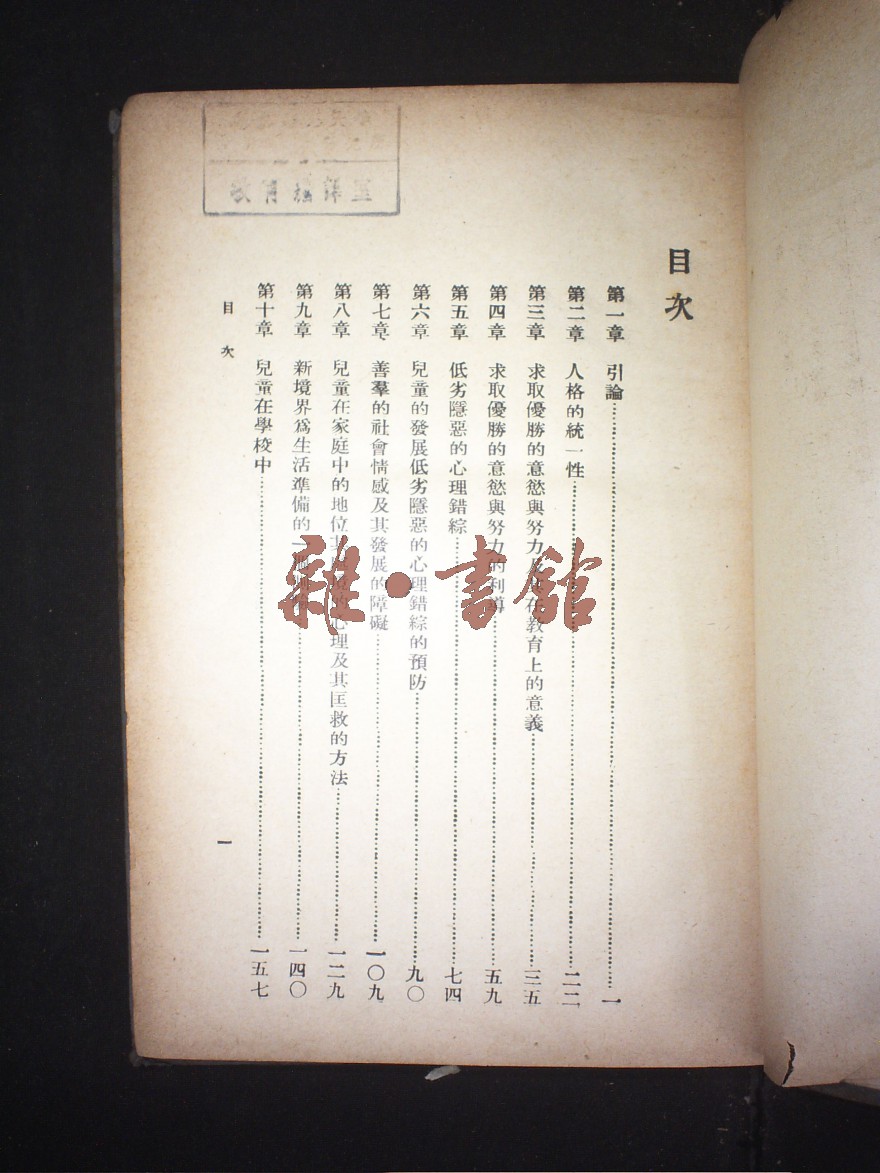 目次
第一章 引論 一
第二章 人格的統一性 二二
第三章 求取優勝的意慾與努力及其在教育上的意義 三五
第四章 求取優勝的意慾與努力的利導 五九
第五章 低劣隱惡的心理錯綜 七四
第六章 兒童的發展低劣隱惡的心理錯綜的預防 九〇
第七章 善羣的社會情感及其發展的障礙 一〇九
第八章 兒童在家庭中的地位 心理及其匡救的方法 一二九
第九章 新境界爲生活準備的 一四〇
第十章 兒童在學校中 一五七
目次
一
雜·書館